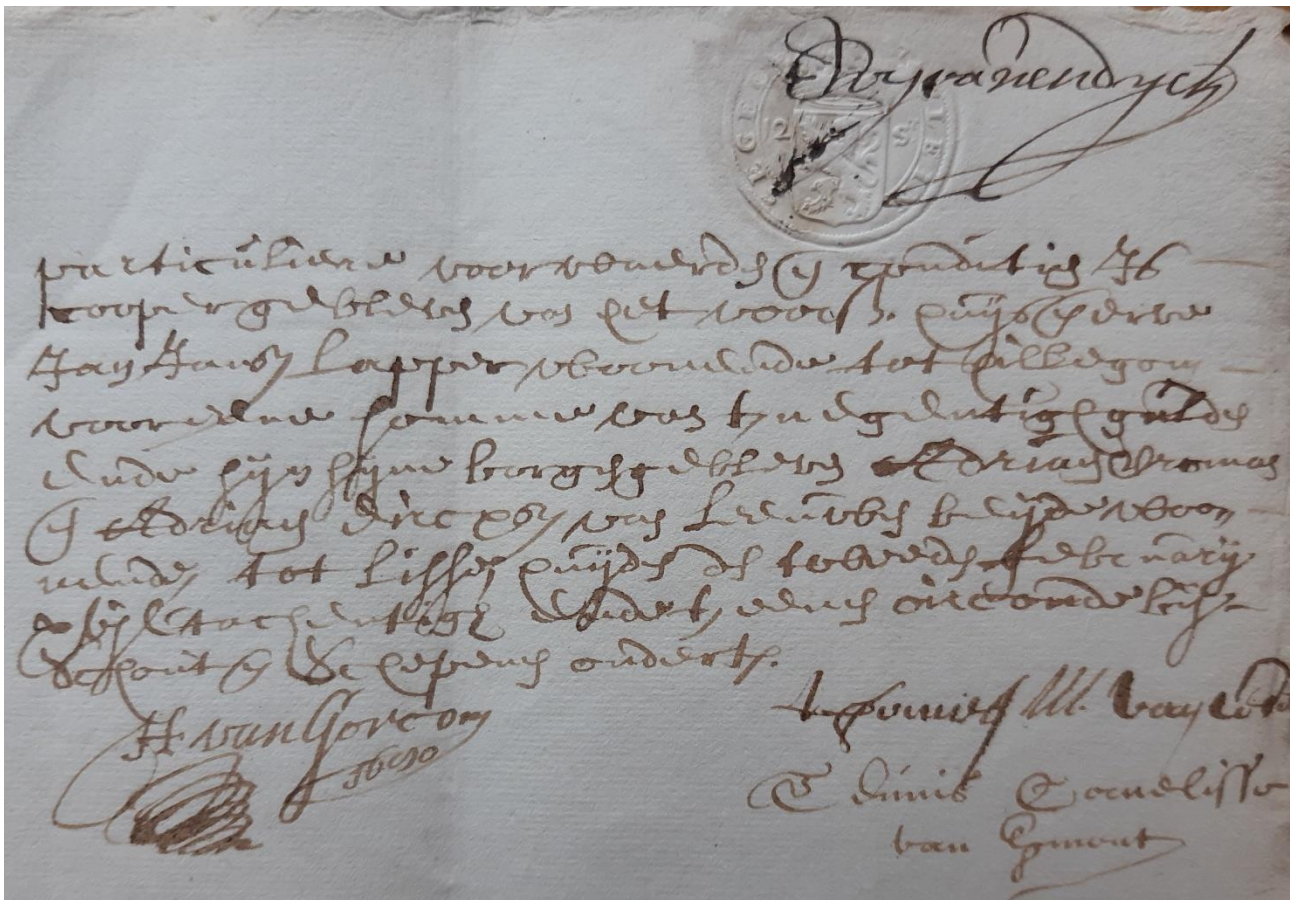 particuliere voorwaerden en conditien Is
cooper gebleven van het voorsz. huijs en erve
Jan Jansz Lapper woonende tot Hillegom
voor eene somme van tnegentigh gulden
ende sijn sijne borgen gebleven Adriaen Vroman
en Adriaen Dircxsz van Leeuwen beijde woon-
nende tot Lisse, huijden den tweeden februarij
xvjC tachentigh ende t' eenen oirconde bij
Schout en Schepenen ondert.
H van Gorcom
1680
Theunis Cornelisse
van Egmont